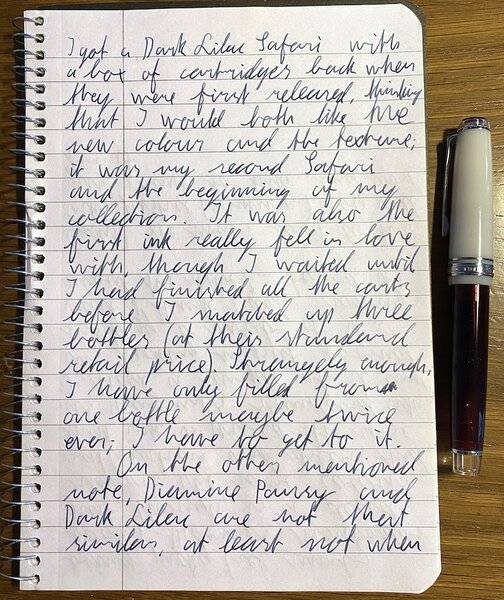 I got a Dark Lilac Safari with
a box of cartridges back when
they were first released, thinking
that I would both like the
new colour and the texture;
it was my second Safari
and the beginning of my
collection. It was also the
first ink really fell in love
with, though I waited until
I had finished all the carts
before I snatched up three
bottles (at their standard
retail price). Strangely enough,
I have only filled from
one bottle maybe twice
ever; I have to get to it.
On the other mentioned
note, Diamine Pansy and
Dark Lilac are not that
similar, at least not when